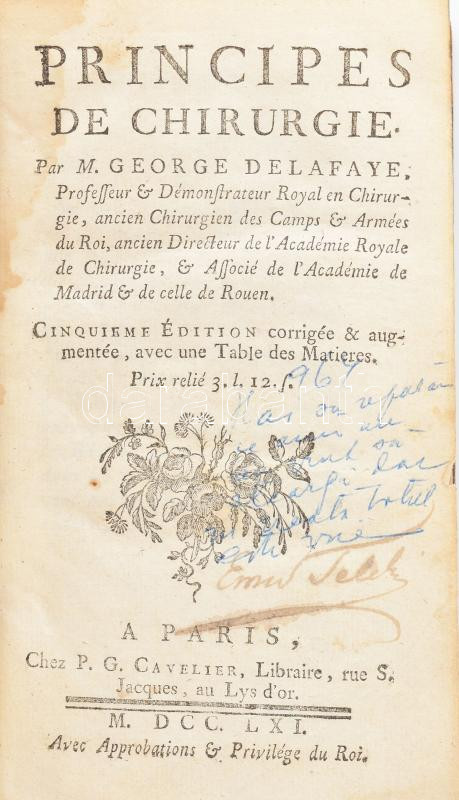 PRINCIPES
DE CHIRURGIE.
Par M. GEORGE DELAFAYE,
Profeſſeur & Démonſtrateur Royal en Chirur-
gie, ancien Chirurgien des Camps & Armées
du Roi, ancien Directeur de l'Académie Royale
de Chirurgie, & Aſſocié de l'Académie de
Madrid & de celle de Rouen.
CINQUIEME ÉDITION corrigée & aug-
mentée, avec une Table des Matieres.
Prix relié 3. l. 12. ſ.
967
totul
este
A PARIS,
Chez P. G. CAVELIER, Libraire, rue S.
Jacques, au Lys d'or.
M. DCC. LXI.
Avec Approbations & Privilége du Roi.